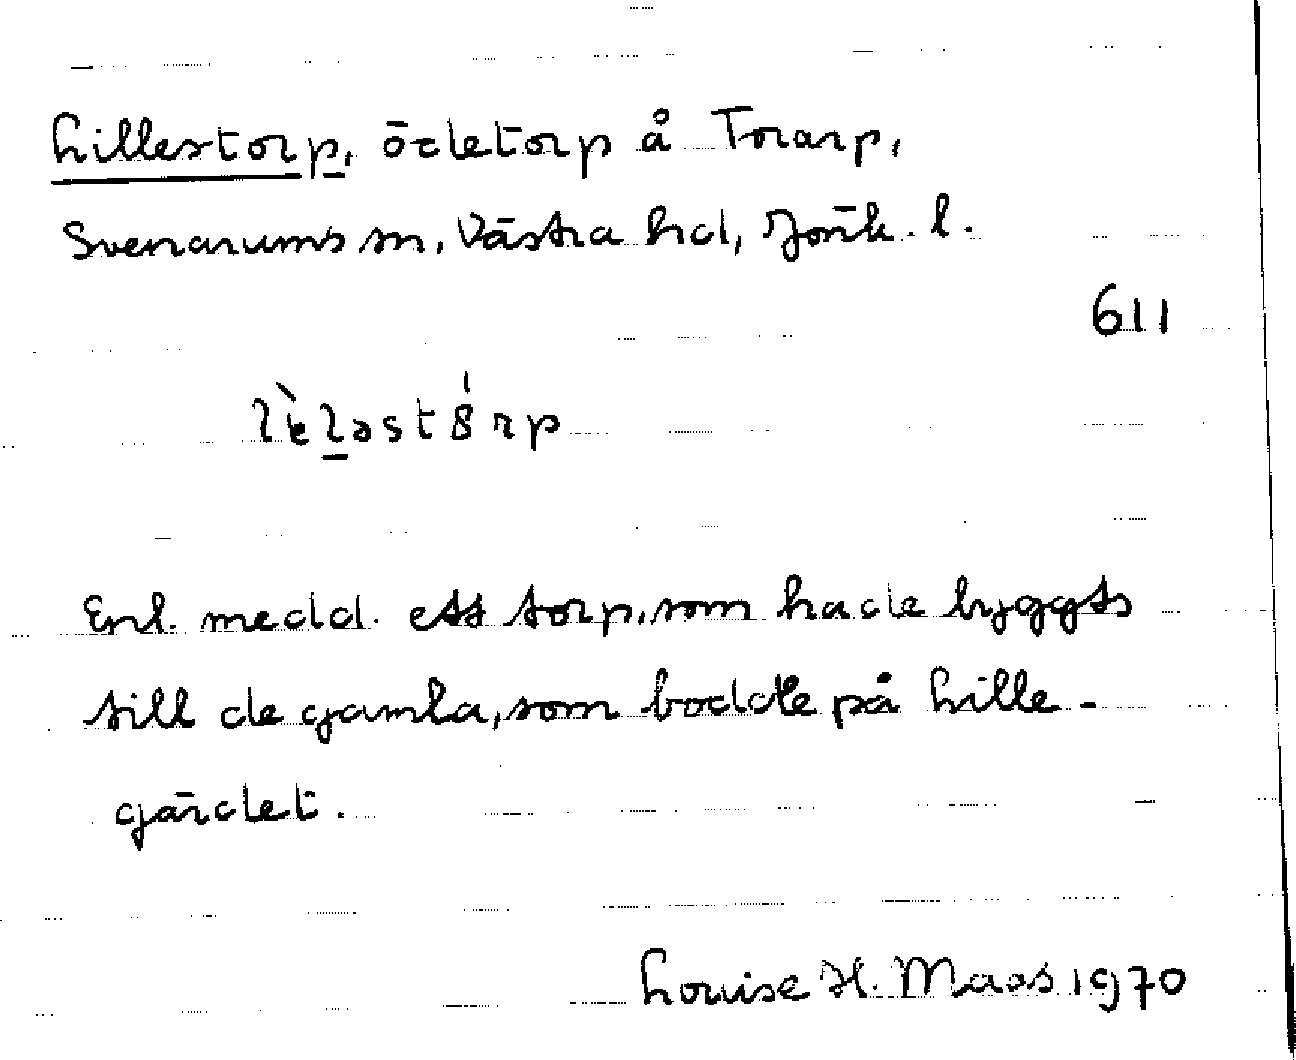 Lillestorp, ödetorp å Torarp,
Svenarums sn, Västra hd, Jönk. l.
611
Enl. medd. ett torp, som hade byggts
till de gamla, som bodde på Lille-
gärdet.
Louise H. Maas 1970